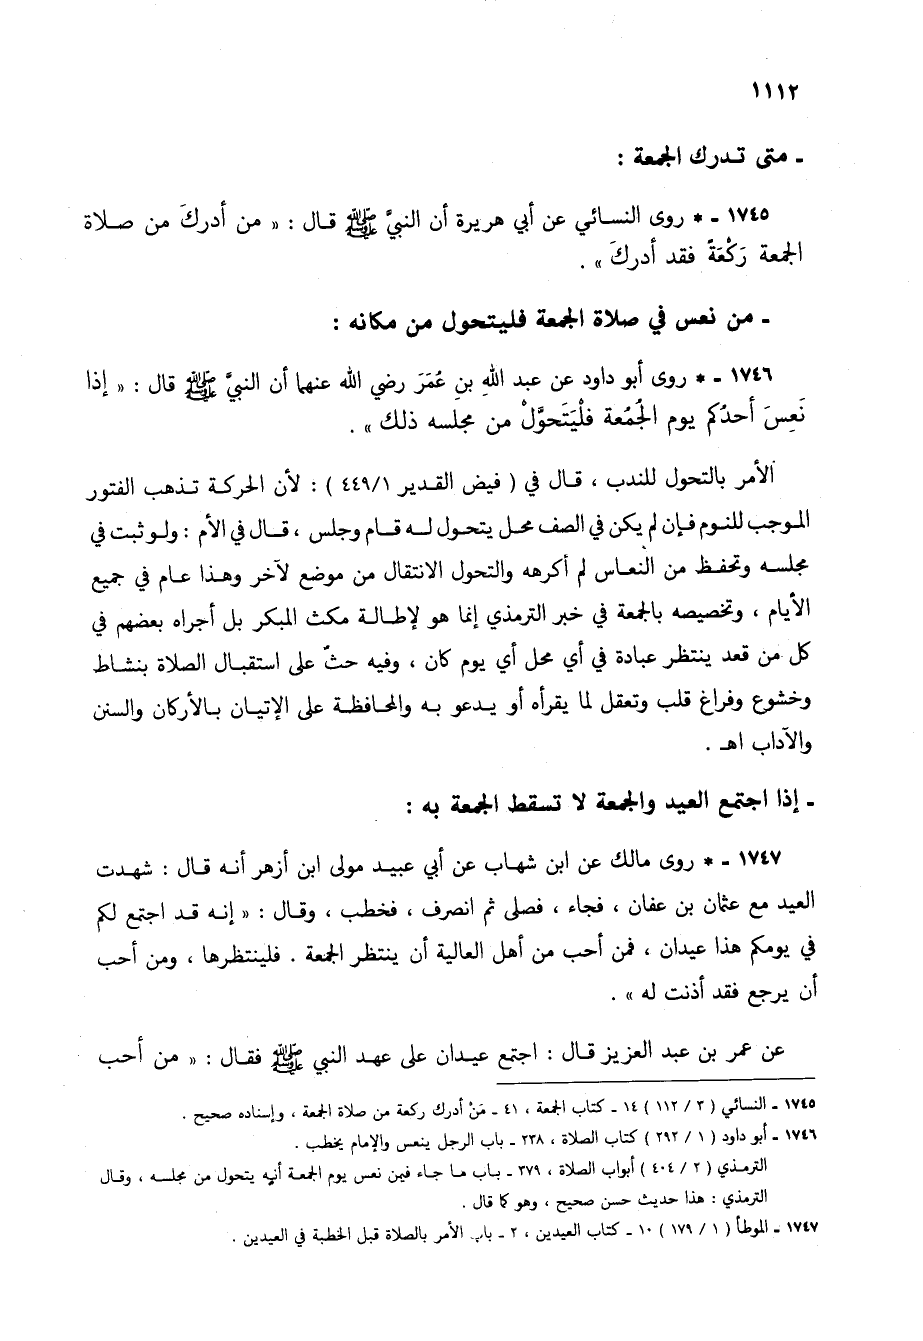 ١١١٢
ـ متى تـدرك الجمعة :
١٧٤٥ ـ * روى النسـائي عن أبي هريرة أن النبيَّ ﷺ قـال : « من أدركَ من صلاة
الجمعة رَكْعَةً فقد أدركَ » .
ـ من نعس في صلاة الجمعة فليتحول من مكانه :
١٧٤٦ ـ * روى أبو داود عن عبد اللهِ بنِ عُمَرَ رضي الله عنهما أن النبيَّ ﷺ قال : « إذا
نَعِسَ أحدُكم يوم الجُمُعة فلْيَتَحوَّلْ من مجلسه ذلك » .
الأمر بالتحول للندب ، قـال في ( فيض القـدير ٤٤٩/١ ) : لأن الحركـة تـذهب الفتور
الموجب للنوم فـإن لم يكن في الصف محـل يتحول لـه قـام وجلس ، قـال في الأم : ولـو ثبت في
مجلسـه وتحفـظ من النعـاس لم أكرهه والتحول الانتقال من موضع لآخر وهـذا عـام في جميع
الأيام ، وتخصيصه بالجمعة في خبر الترمذي إنما هو لإطـالـة مكث المبكر بل أجراه بعضهم في
كل من قعد ينتظر عبادة في أي محل أي يوم كان ، وفيه حثٌ على استقبال الصلاة بنشـاط
وخشوع وفراغ قلب وتعقل لما يقرأه أو يـدعو بـه والمحافظـة على الإتيـان بـالأركان والسنن
والآداب اهـ .
ـ إذا اجتمع العيد والجمعة لا تسقط الجمعة به :
١٧٤٧ ـ * روى مالك عن ابن شهاب عن أبي عبيـد مولى ابن أزهر أنـه قـال : شهـدت
العيد مع عثمان بن عفان ، فجاء ، فصلى ثم انصرف ، فخطب ، وقـال : « إنـه قد اجتمع لكم
في يومكم هذا عيدان ، فمن أحب من أهل العالية أن ينتظر الجمعة . فلينتظرها ، ومن أحب
أن يرجع فقد أذنت له » .
عن عمر بن عبد العزيز قـال : اجتمع عيـدان على عهـد النبي ﷺ فقـال : « من أحب
١٧٤٥ ـ النسائي ( ٣ / ١١٢ ) ١٤ ـ كتاب الجمعة ، ٤١ ـ مَنْ أدرك ركعة من صلاة الجمعة ، وإسناده صحيح .
١٧٤٦ ـ أبو داود ( ١ / ٢٩٢ ) كتاب الصلاة ، ٢٣٨ ـ باب الرجل ينعس والإمام يخطب .
الترمـذي ( ٢ / ٤٠٤ ) أبواب الصلاة ، ٣٧٩ ـ بـاب مـا جـاء فيمن نعس يوم الجمعة أنـه يتحول من مجلسـه ، وقـال
الترمذي : هذا حديث حسن صحيح ، وهو كما قال .
١٧٤٧ ـ الموطأ ( ١ / ١٧٩ ) ١٠ ـ كتاب العيدين ، ٢ ـ باب الأمر بالصلاة قبل الخطبة في العيدين .